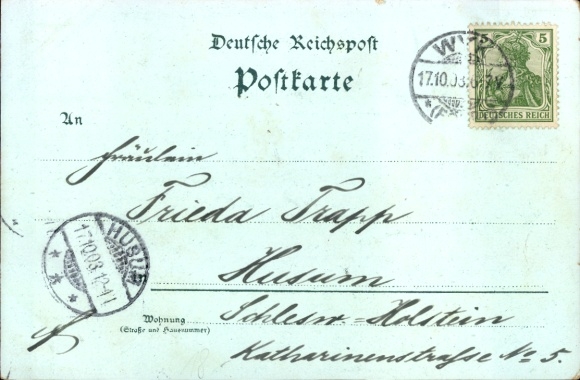 Deutsche Reichspost
Postkarte
5
WYK
17.10.03.
DEUTSCHES REICH
An
Fräulein
Frieda Trapp
HUSUM
17.10.03.
Husum
Wohnung
(Straße und Hausnummer)
Schlesw.-Holstein
Katharinenstraße No 5.